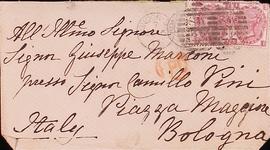 All'Illmo Signore
Signor Giuseppe Martoni
presso Signor Camillo Pini
Piazza Maggiore
Italy Bologna